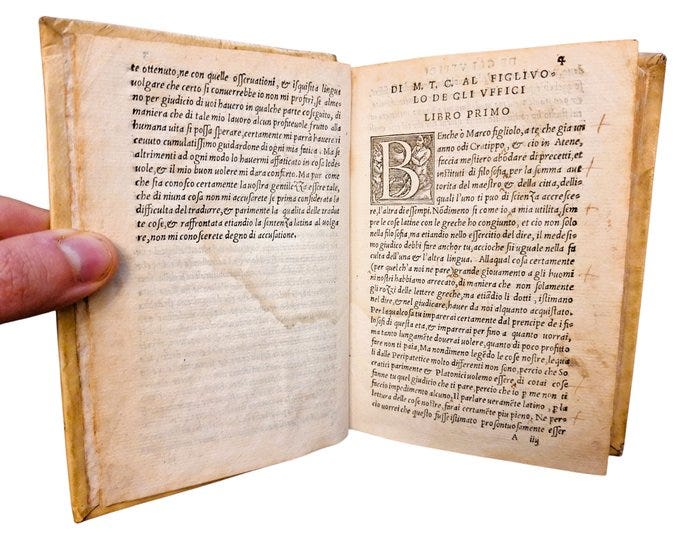 te ottenuto, ne con quelle osseruationi, & isquisita lingua
uolgare che certo si conuerrebbe io non mi proferi, se alme
no per giudicio di uoi hauero in qualche parte cõseguito, di
maniera che di tale mio lauoro alcun profiteuole frutto alla
humana uita si possa sperare, certamente mi parrà hauere ri
ceuuto cumulatissimo guidardone di ogni mia fatica. Ma se
altrimenti ad ogni modo lo hauermi affaticato in cosa lode-
uole, & il mio buon uolere mi dara conforto. Ma pur come
che sia conosco certamente la uostra gentilezza essere tale,
che di niuna cosa non mi accuserete se prima considerata la
difficulta del tradurre, & parimente la qualita delle tradut
te cose, & raffrontata etiandio la sentenza latina al uolga
re, non mi conoscerete degno di accusatione.
4
DI M. T. C. AL FIGLIVO-
LO DE GLI VFFICI
LIBRO PRIMO
BEnche ò Marco figliolo, a te che gia un
anno odi Cratippo, & cio in Atene,
faccia mestiero abodare di precetti, et
instituti di filosofia, per la somma aut
torita del maestro & della citta, delli-
quali l'uno ti puo di scienza accresce-
re, l'altra di essempi. Nõdimeno si come io, a mia utilita, sem
pre le cose latine con le greche ho congiunto, et cio non solo
nella filosofia, ma etiandio nello essercitio del dire, il mede si
mo giudico debbi fare anchor tu, accioche sii uguale nella fa
culta dell'una & l'altra lingua. Allaqual cosa certamente
(per quel ch'a noi ne pare) grande giouamento a gli huomi
ni habbiamo arrecato, di maniera che non solamente
gli rozzi delle lettere greche, ma etiãdio li dotti, istimano
nel dire, & nel giudicare, hauer da noi alquanto acquistato.
Per laqual cosa tu imparerai certamente dal prencipe de i fi
losofi di questa eta, & imparerai per fino a quanto uorrai,
ma tanto lungamẽte douerai uolere, quanto di poco profitto
fare non ti paia, Ma nondimeno legẽdo le cose nostre, lequa
li dalle Peripatetice molto differenti non sono, percio che So
cratici parimente & Platonici uolemo essere, di cotai cose
fanne tu quel giudicio che ti pare, percio che io ꝑ me non ti
faccio impedimento alcuno, Il parlare ueramẽte latino, ꝑ la
lettura delle cose nostre, farai certamẽte piu pieno, Ne per-
cio uorrei che questo fusse istimato prosontuosamente esser
A iiij